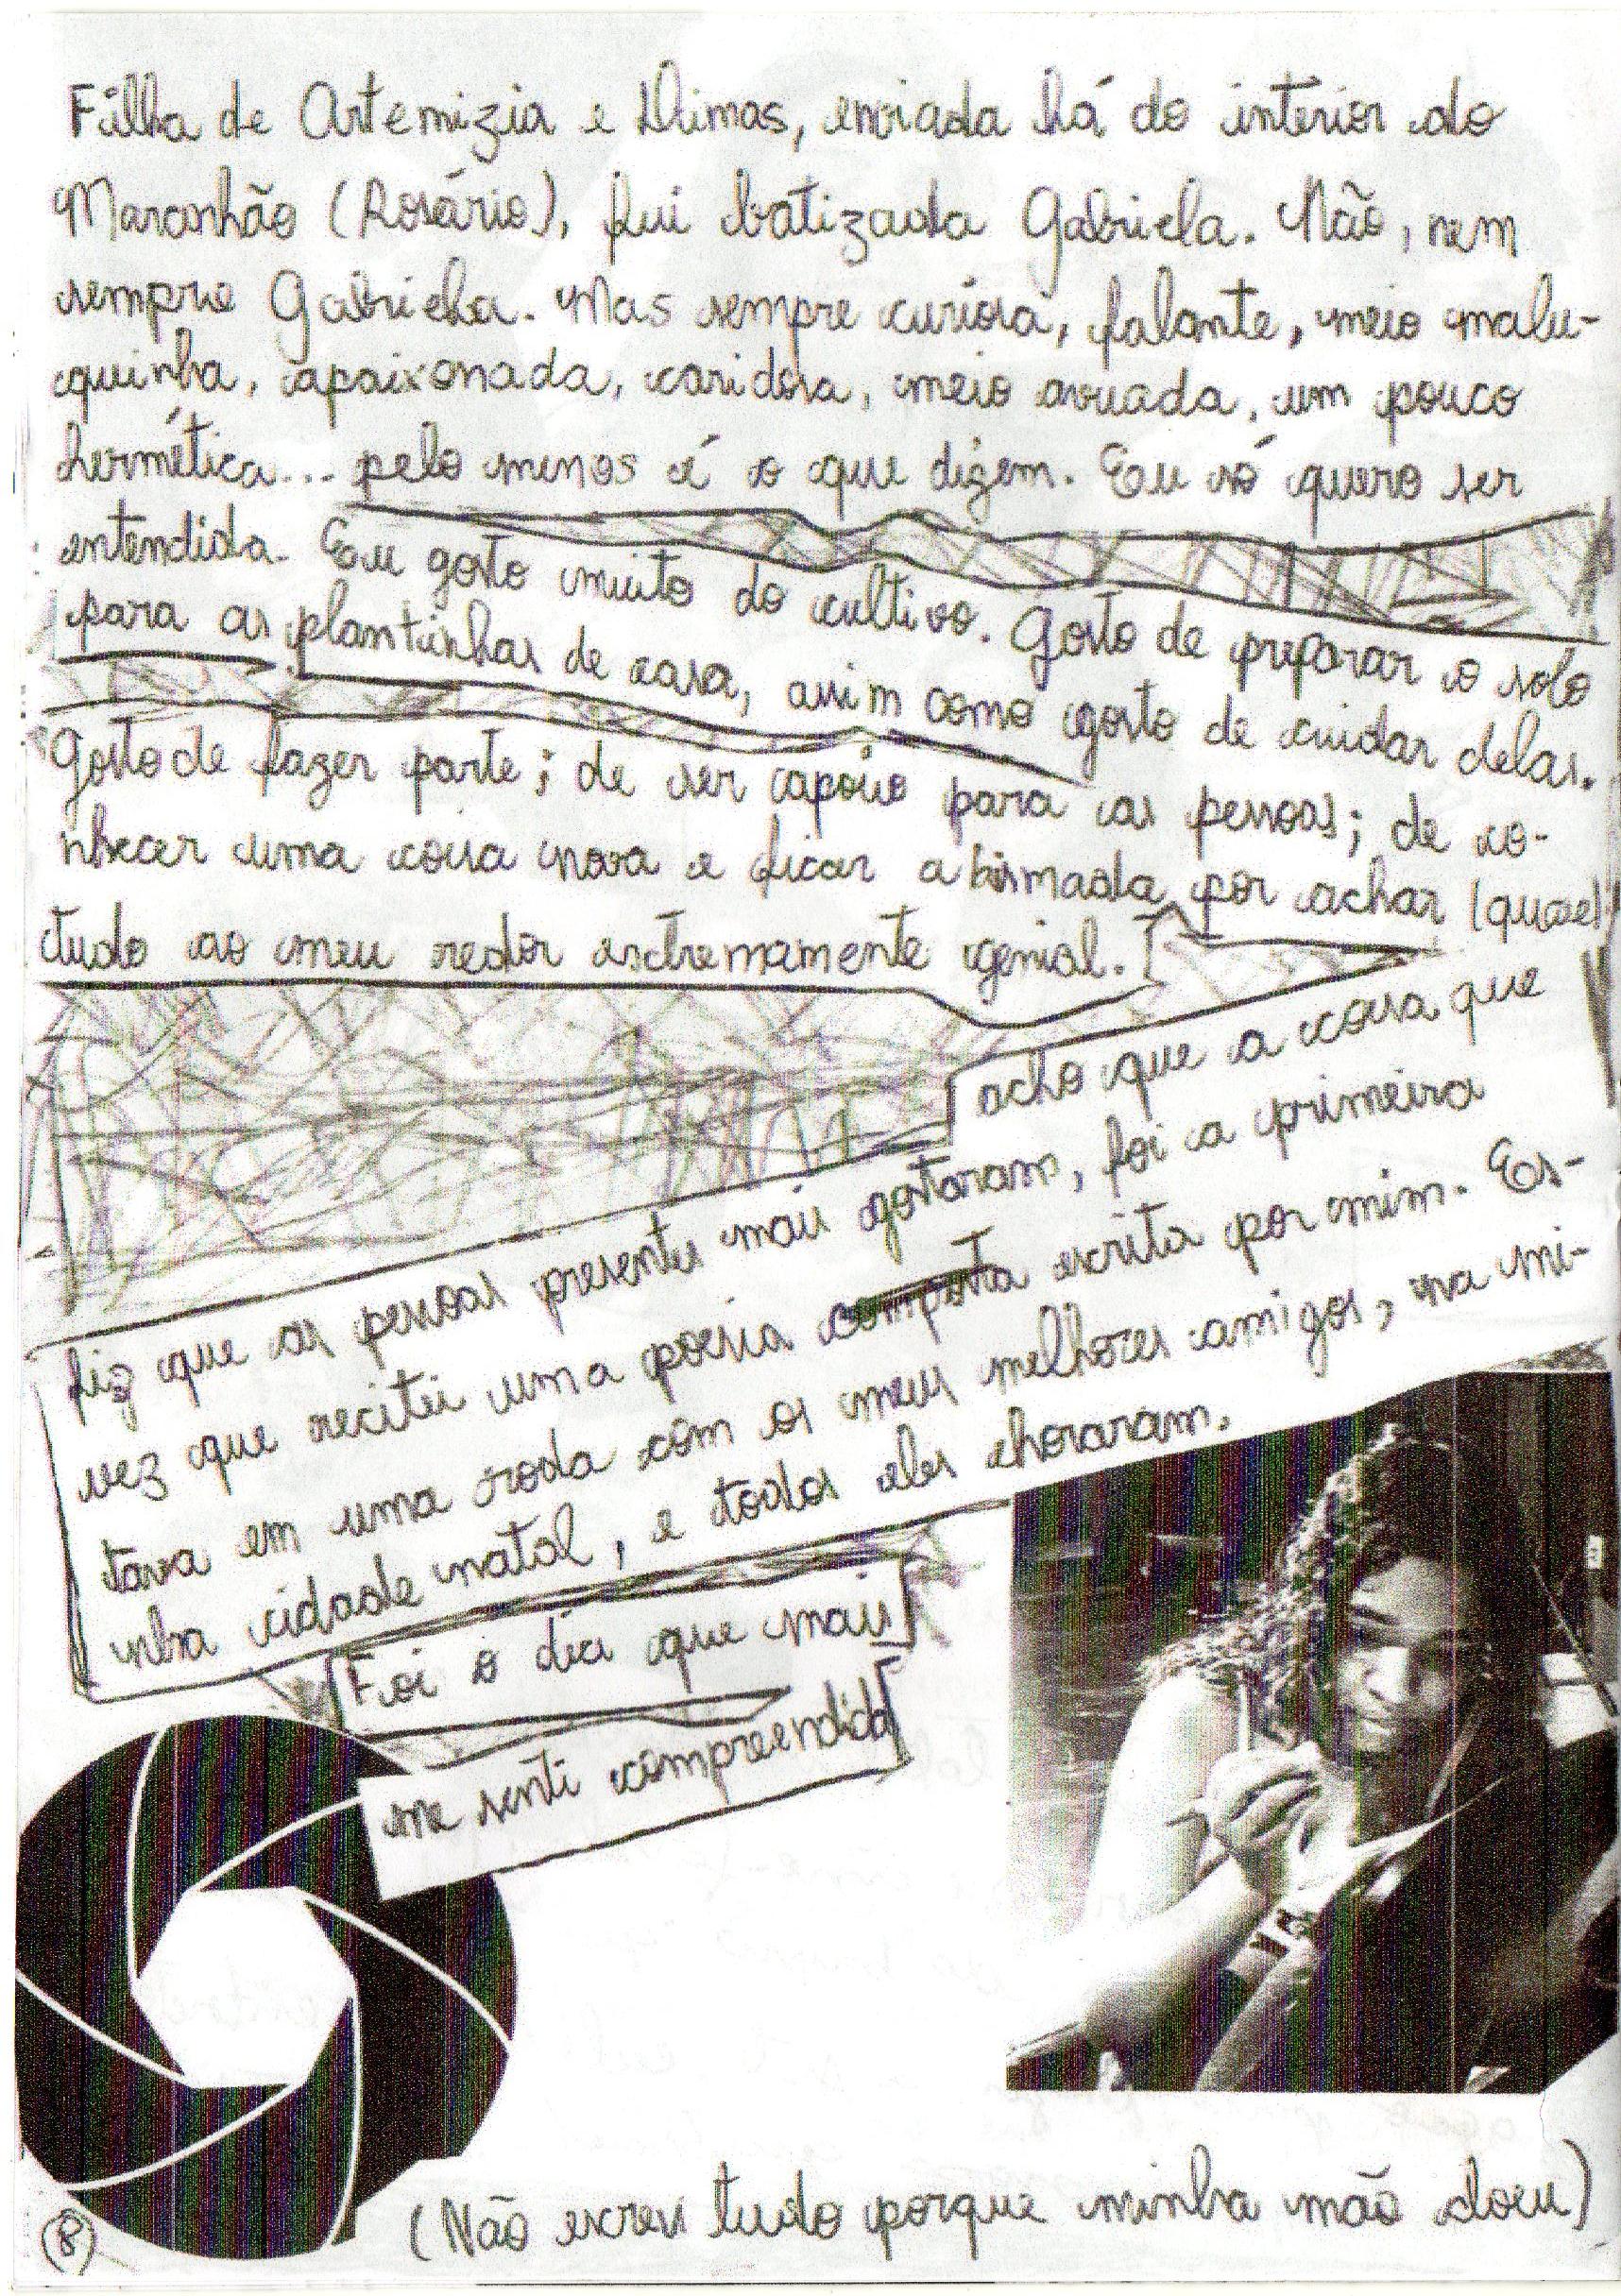 Filha de Artemizia e Dhimas, enviada há do interior do
Maranhão (Rosário), fui batizada Gabriela. Não, nem
sempre Gabriela. Mas sempre curiosa, falante, meio malu-
quinha, apaixonada, caridosa, meio avuada, um pouco
hermética... pelo menos é o que dizem. Eu só quero ser
entendida. Eu gosto muito do cultivo. Gosto de preparar o solo
para as plantinhas de casa, assim como gosto de cuidar delas.
Gosto de fazer parte; de ser apoio para as pessoas; de co-
nhecer uma coisa nova e ficar abismada por achar (quase)
tudo ao meu redor extremamente genial.
acho que a coisa que
fiz que as pessoas presentes mais gostaram, foi a primeira
vez que recitei uma poesia composta escrita por mim. Es-
tava em uma roda com os meus melhores amigos, na mi-
nha cidade natal, e todos eles choraram.
Foi o dia que mais
me senti compreendida
(Não escrevi tudo porque minha mão doeu)
8